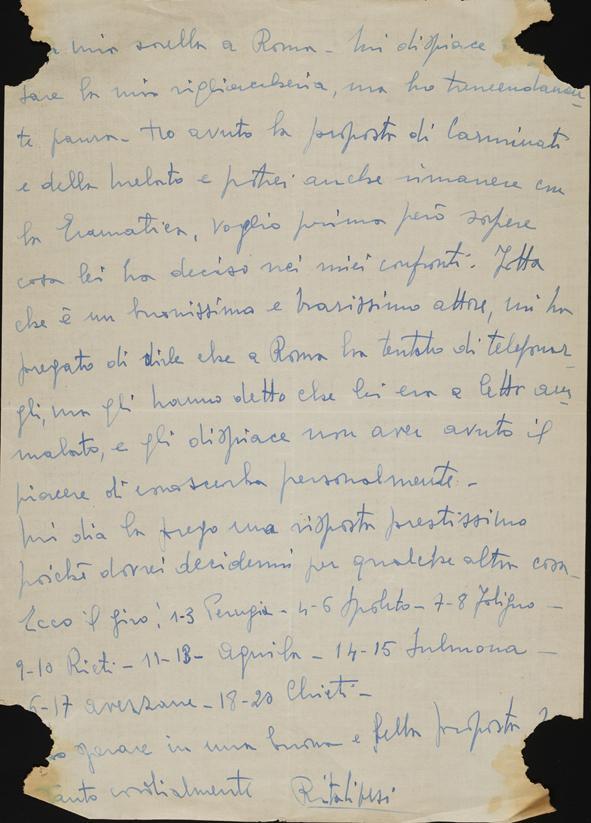 a mia sorella a Roma - Mi dispiace
fare la mia vigliaccheria, ma ho tremendamen-
te paura - Ho avuto la proposta di Carminati
e della Melato e potrei anche rimanere con
la Gramatica, voglio prima però sapere
cosa lei ha deciso nei miei confronti. Jotta
che è un buonissimo e bravissimo attore, mi ha
pregato di dirle che a Roma ha tentato di telefonar-
gli, ma gli hanno detto che lei era a letto am-
malato, e gli dispiace non aver avuto il
piacere di conoscerla personalmente. -
Mi dia la prego una risposta prestissimo
poiché dovrei decidermi per qualche altra cosa -
Ecco il giro: 1-3 Perugia - 4-6 Spoleto - 7-8 Foligno -
9-10 Rieti - 11-13 - Aquila - 14-15 Sulmona -
6-17 Avezzano - 18-20 Chieti -
sperare in una buona e bella proposta ?
tanto cordialmente Rita